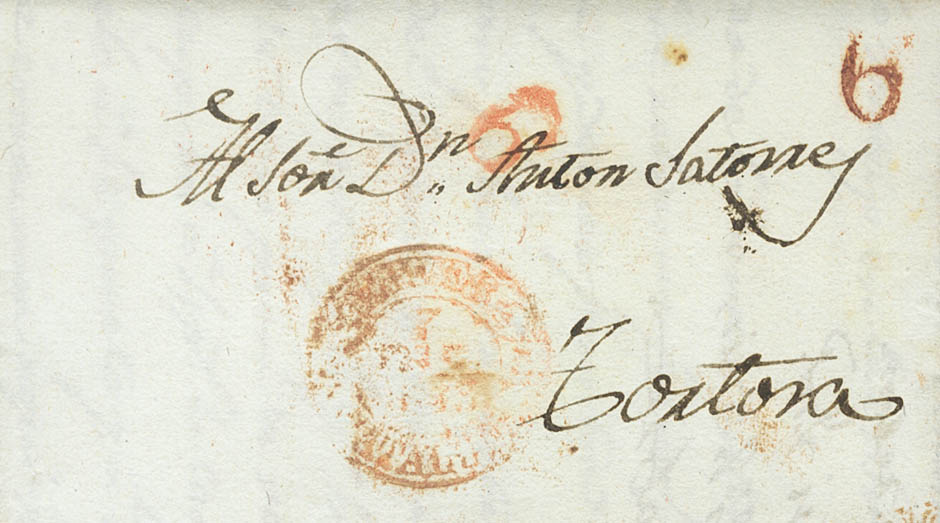 6
Al Sor. Dn. Anton Satorres
Tortosa